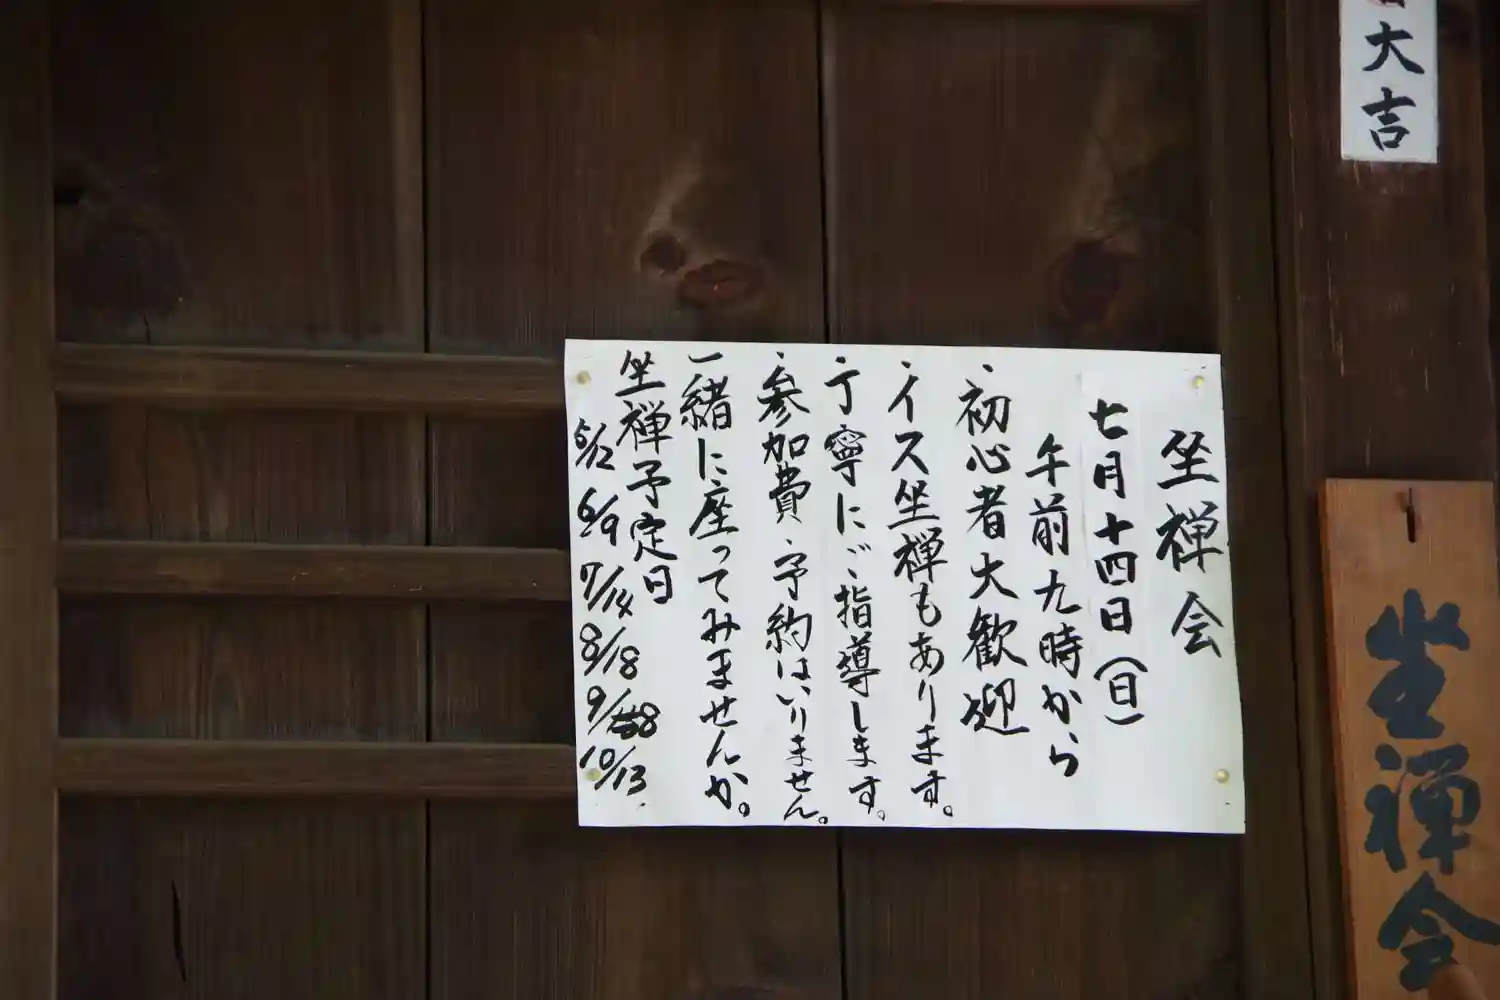 大吉
坐禅会
坐禅会
七月十四日(日)
午前九時から
・初心者大歓迎
・イス坐禅もあります。
・丁寧にご指導します。
・参加費・予約はいりません。
一緒に座ってみませんか。
坐禅予定日
5/12 6/9 7/14 8/18 9/8 10/13